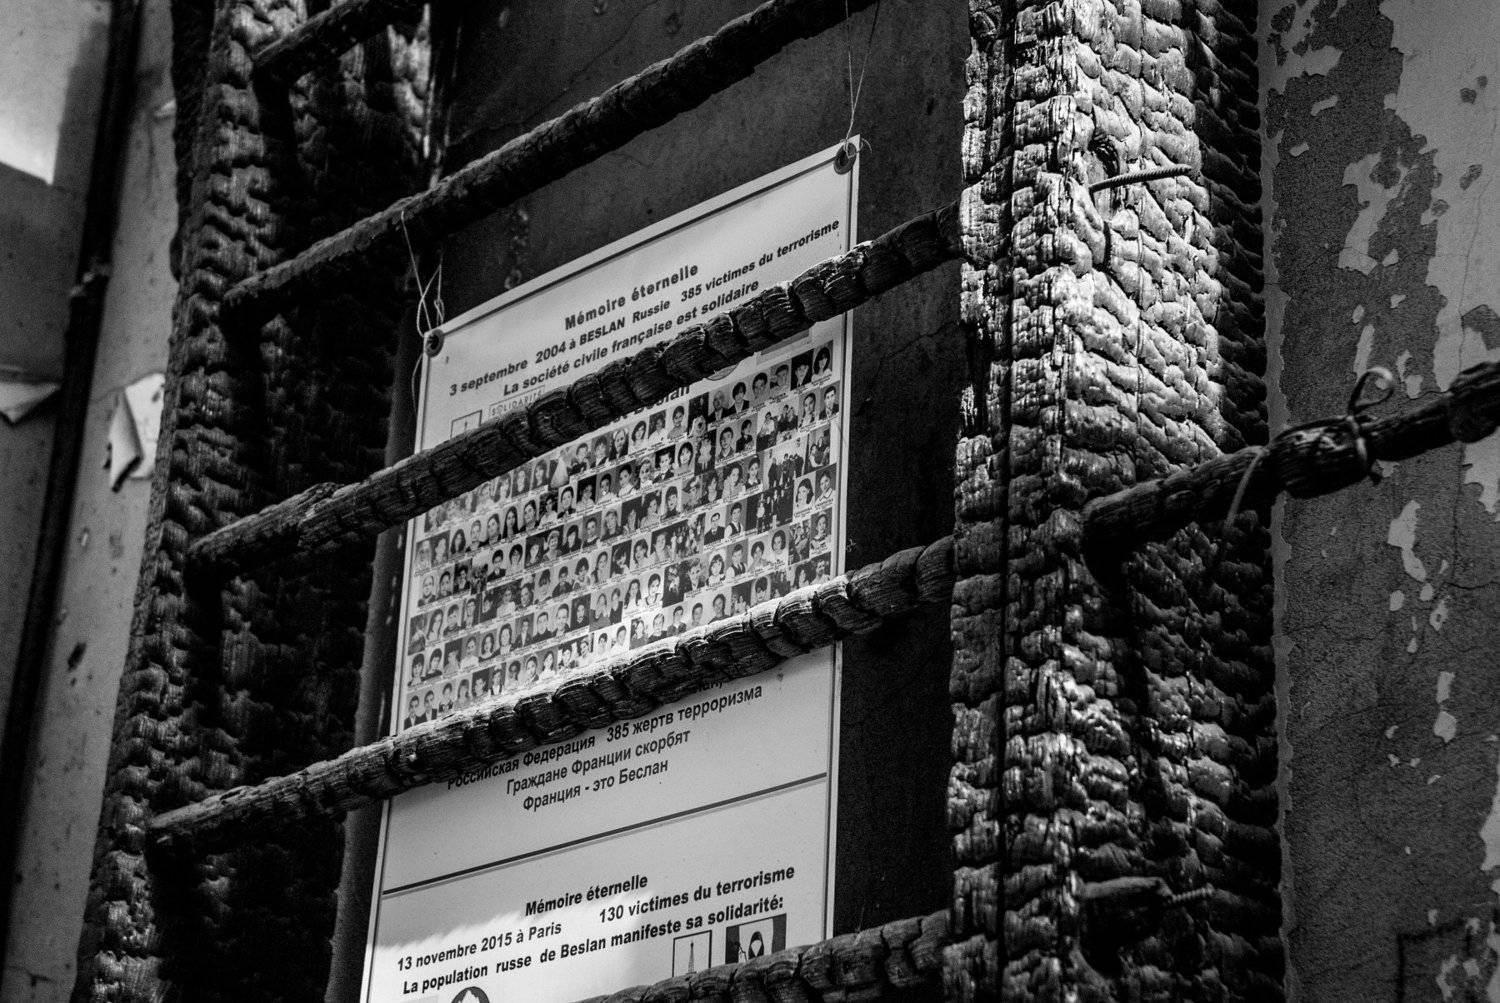 Mémoire éternelle
3 septembre 2004 à BESLAN Russie 385 victimes du terrorisme
La société civile française est solidaire
SOLIDARITÉ
Beslan
Российская Федерация 385 жертв терроризма
Граждане Франции скорбят
Франция - это Беслан
Mémoire éternelle
13 novembre 2015 à Paris 130 victimes du terrorisme
La population russe de Beslan manifeste sa solidarité: